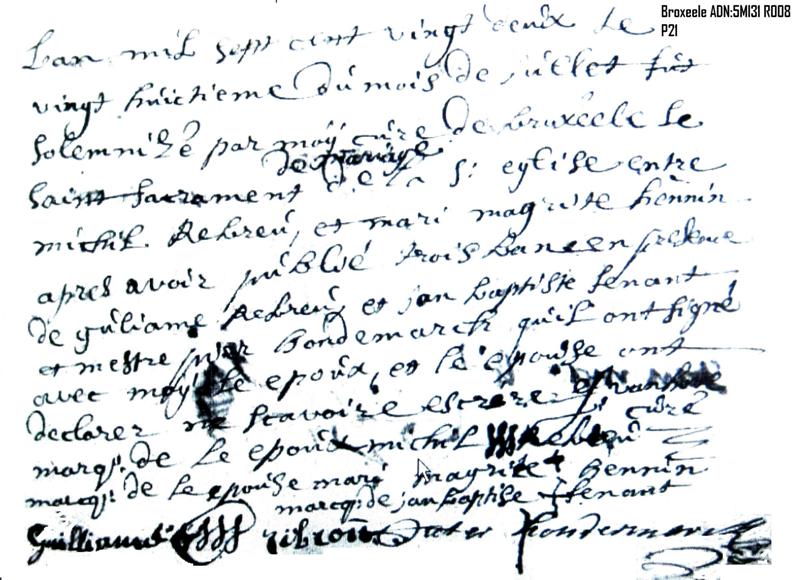 Broxeele ADN:5MI31 R008
P21
Lan mil sept cent vingt deux le
vingt huictieme du mois de juillet fut
solemnizé par moÿ curé de bruxeele le
de mariage
saint sacrament de la St eglise entre
michil Rebreü, et mari magrite hennin
apres avoir publié trois bans en presence
de guliame Rebreü, et jan baptiste tenant
et mestre pier bondemarck quil ont signé
avec moÿ Le epoux, et le epouse ont
declarez ne scavoire escrere
curé
marq. de le epoux michil Rebreü
marcq: de le epouse mari magrite + hennin
marcq de jan baptise + tenant
Guilliaume ribroü pieter bondemarck